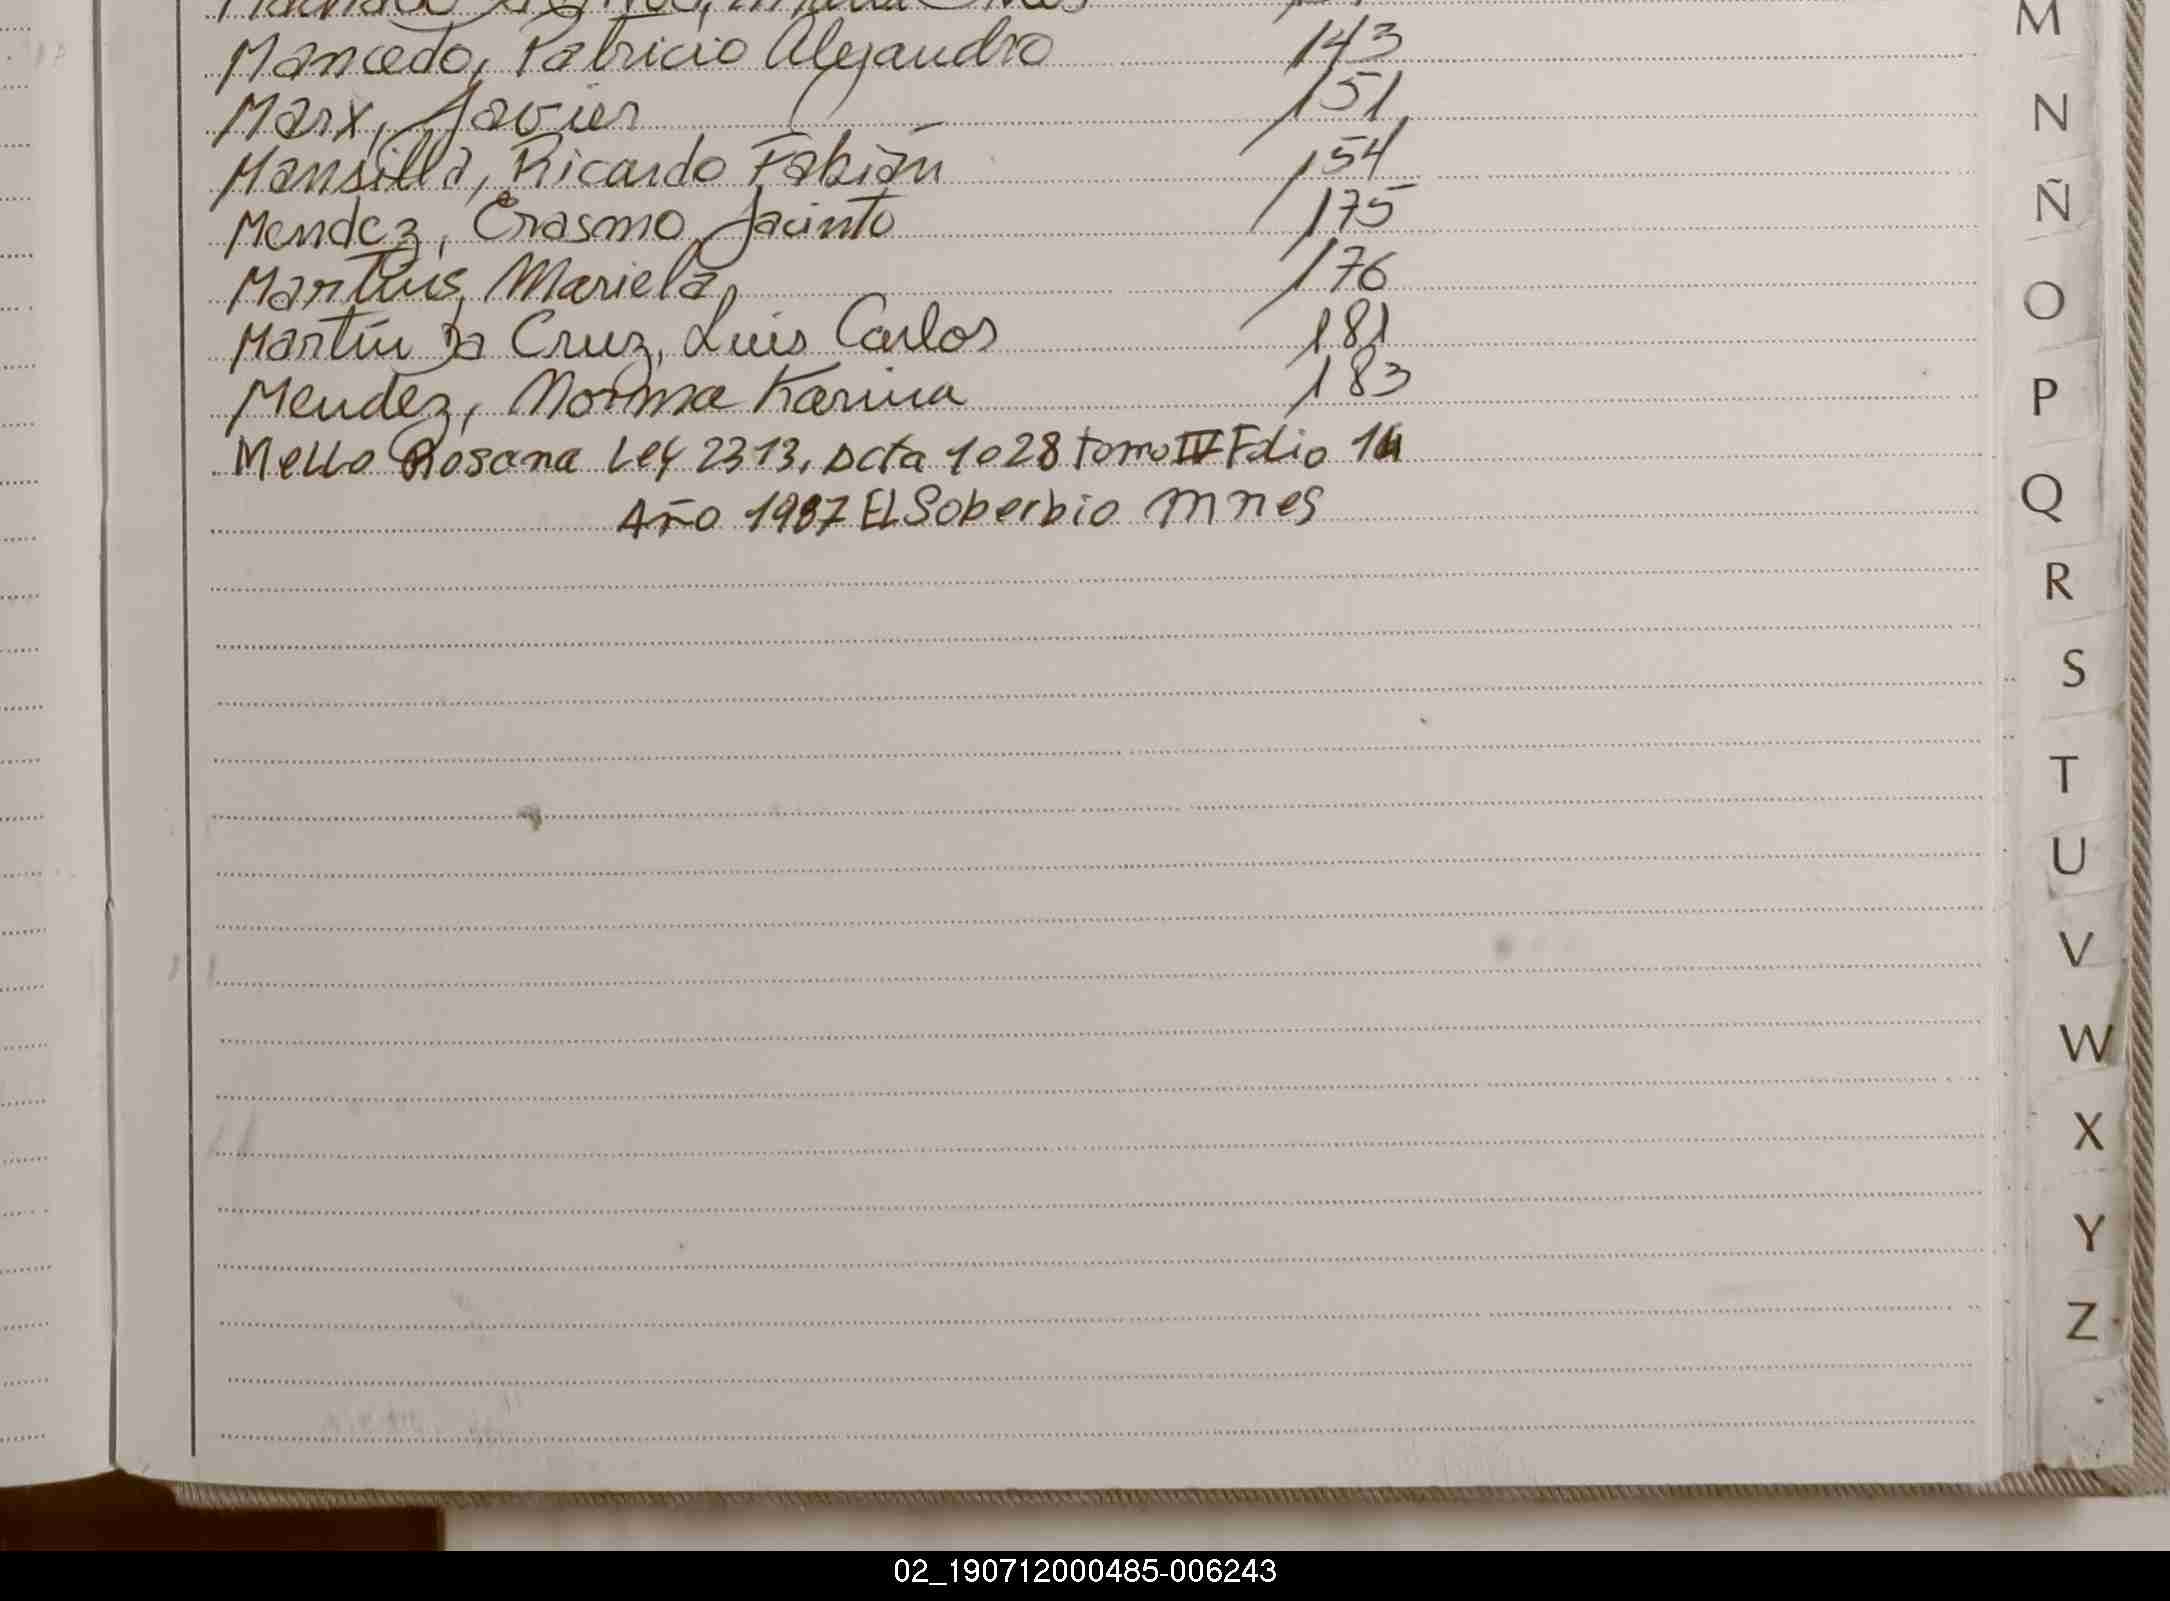 Mancedo, Patricio Alejandro 143
Marx, Javier 151
Mansilla, Ricardo Fabián 154
Mendez, Erasmo Jacinto 175
Martins, Mariela 176
Martín Da Cruz, Luis Carlos 181
Mendez, Norma Karina 183
Mello Rosana Ley 2313, Acta 1028 tomo IV Folio
Año 1987 EL Soberbio Mnes
M
N
Ñ
O
P
Q
R
S
T
U
V
W
X
Y
Z
02_190712000485-006243